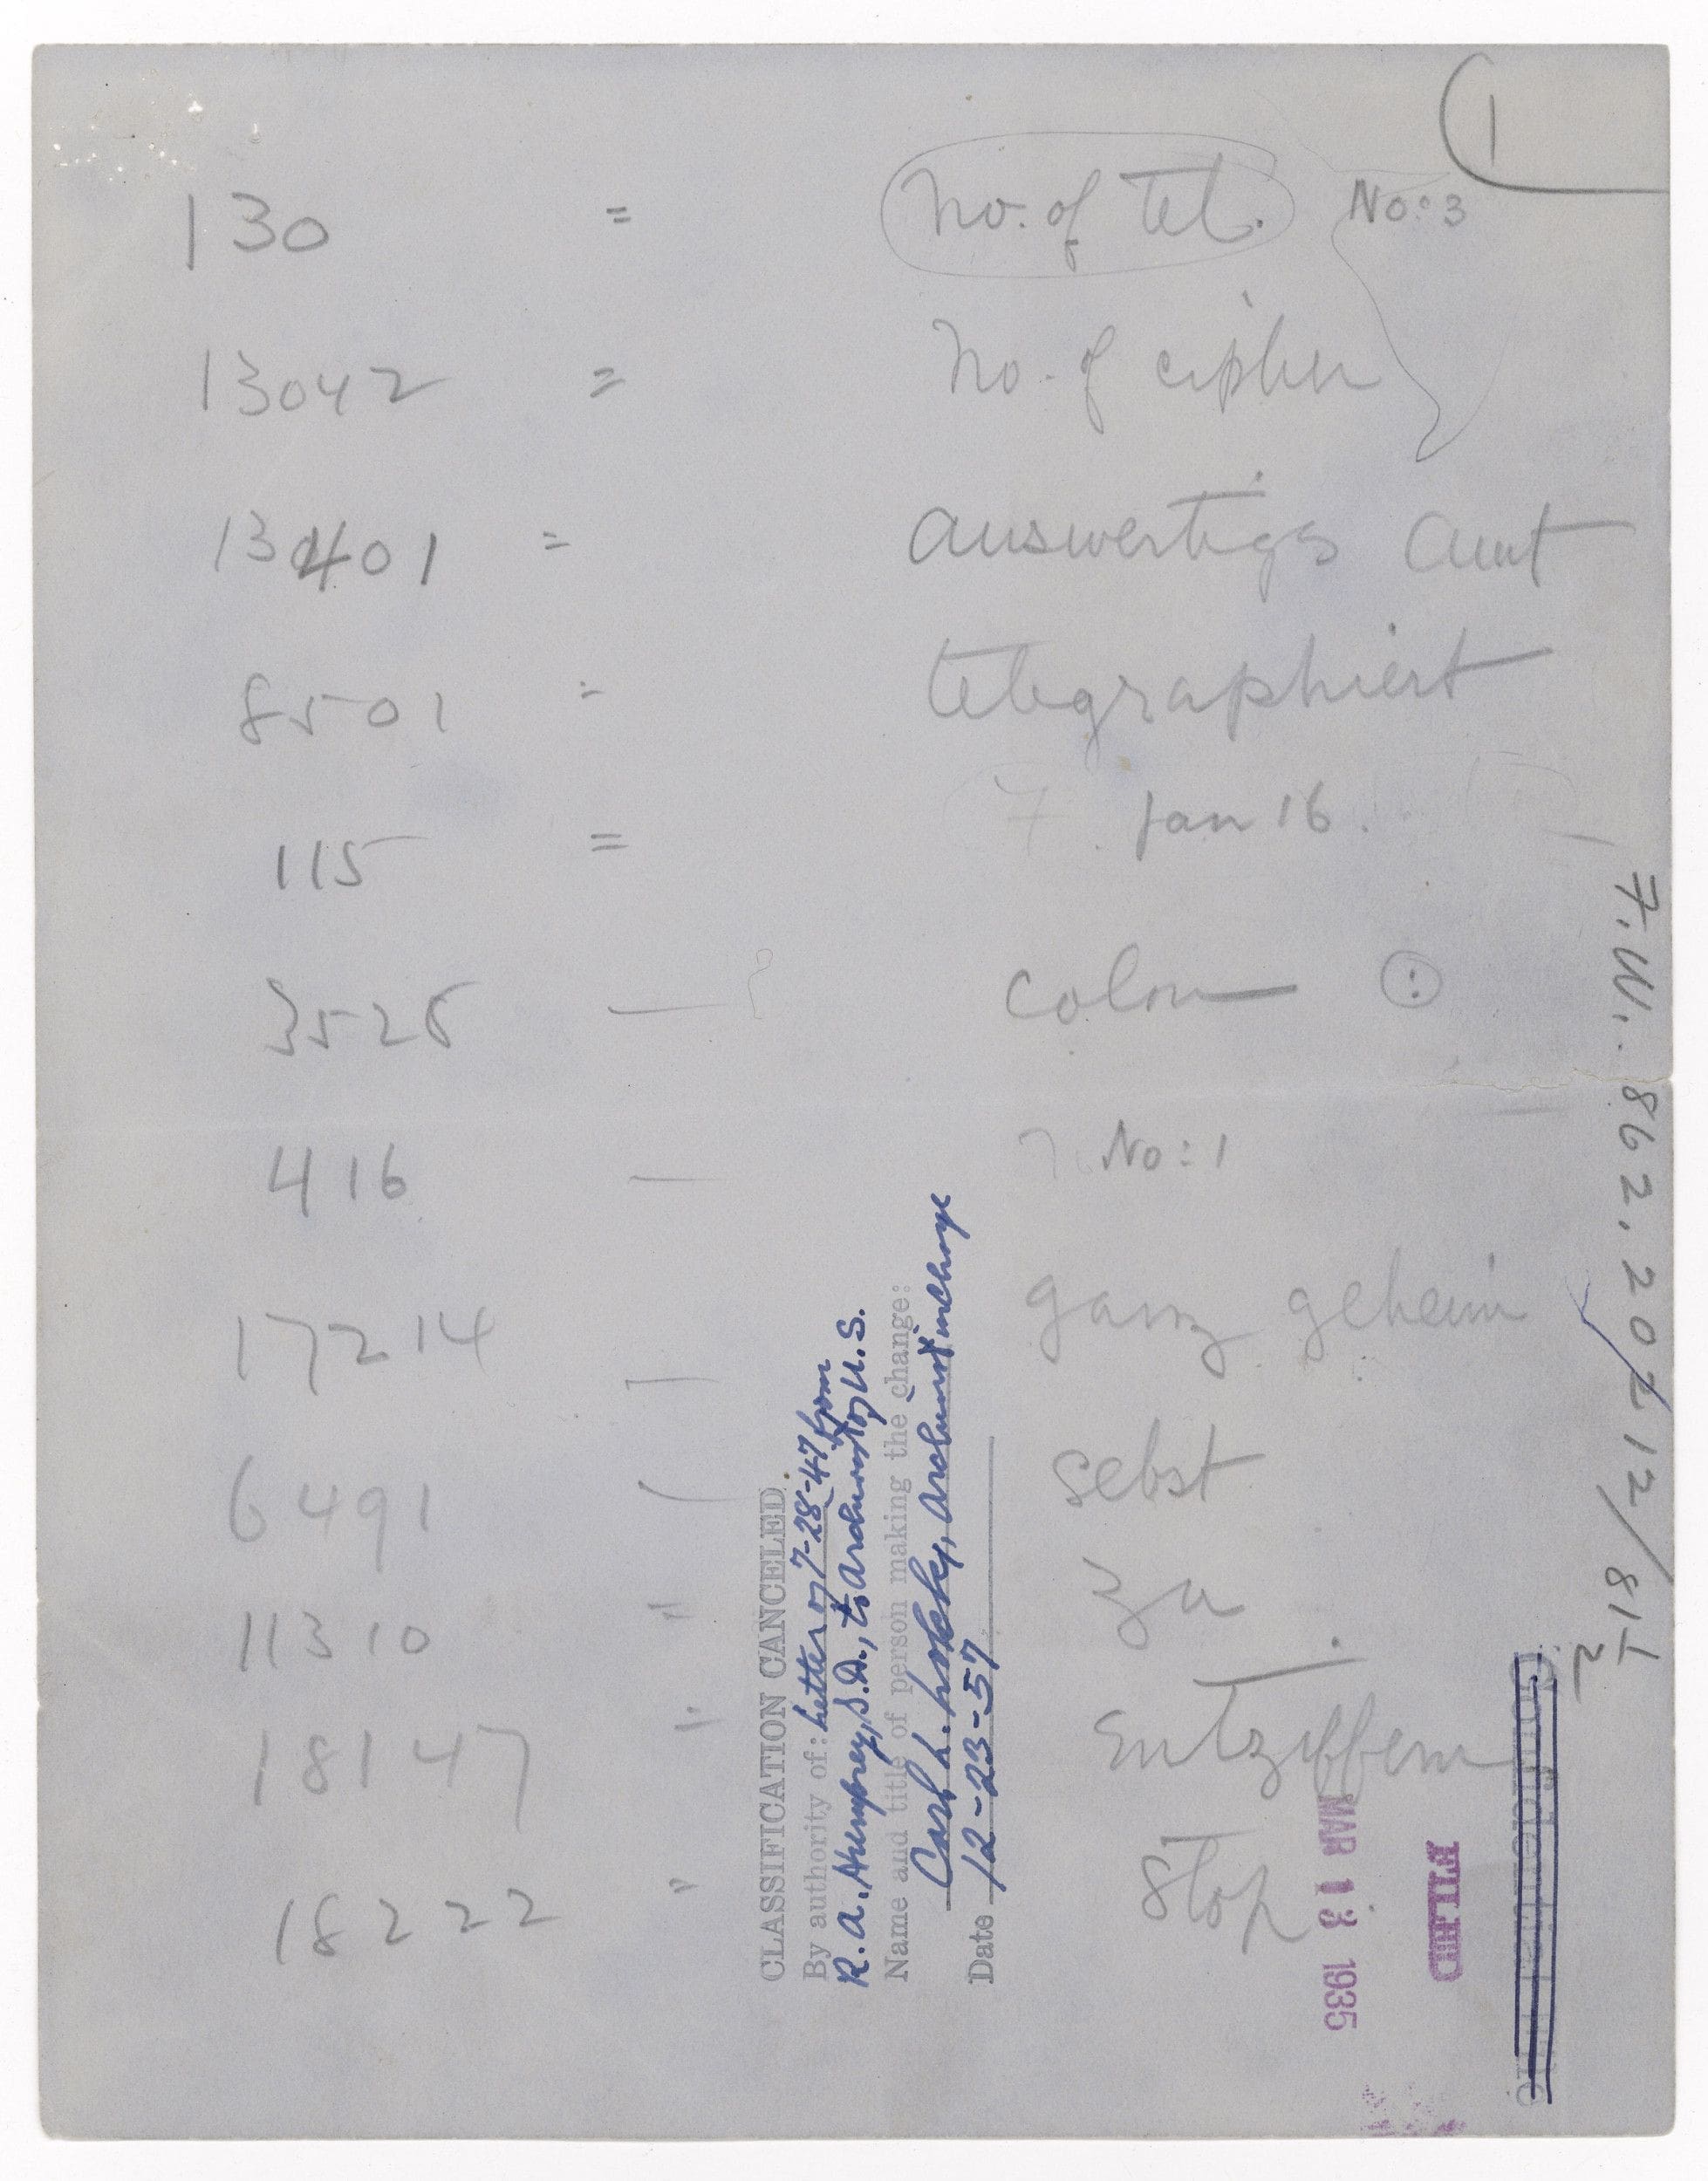 1
130 = No. of Tel. No: 3
13042 = No. of cipher
13401 = Auswertigs Amt
8501 = telegraphiert
115 = 7. Jan 16.
3528 — colon :
416 — No: 1
17214 — ganz geheim
6491 — sebst
11310 " zu
18147 " Entziffern
18222 " Stop.
CLASSIFICATION CANCELED
By authority of: Letter of 7-28-47 from
R. A. Humphrey, S.D., to Archivist of U.S.
Name and title of person making the change:
Carl L. Archivist in charge
Date 12-23-57
F.W. 862.20212/81½
MAR 13 1935
FILED